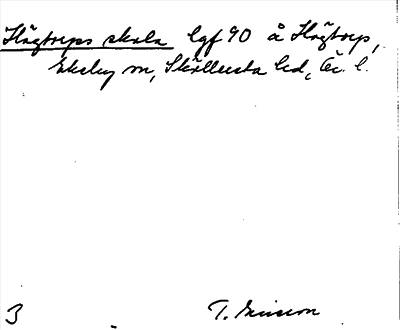 Högtorps skola lgf 90 å Högtorp,
Ekeby sn, Sköllersta hd, Ör. l.
3 T. Ericsson